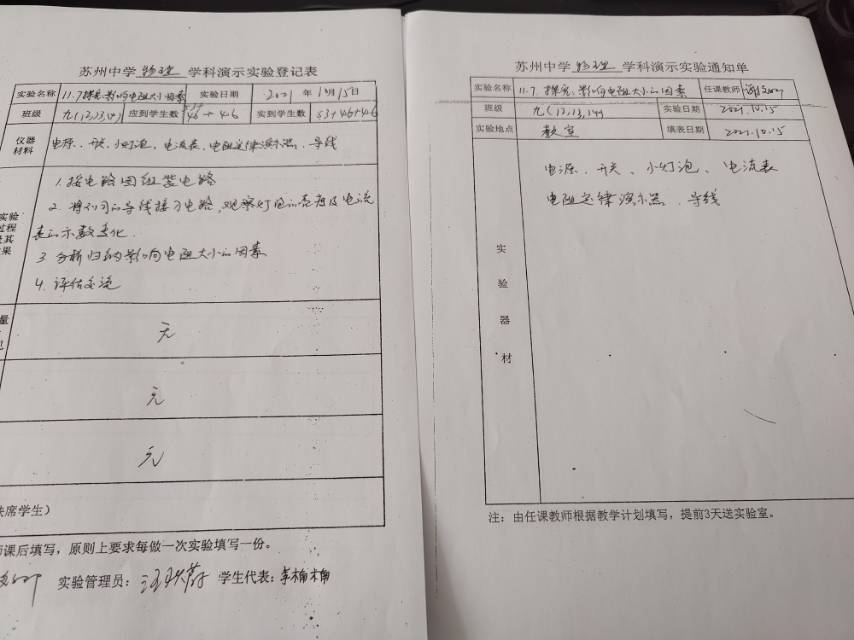 苏州中学 物理 学科演示实验登记表
实验名称 11.7探究影响电阻大小因素 实验日期 2021 年 月15日
班级 九(12,13,14) 应到学生数 53+46+46 实到学生数 53+46+46
仪器材料 电源、开关、小灯泡、电流表、电阻定律演示器、导线
实验
过程
及其
结果
1. 按电路图组装电路
2. 将不同的导线接入电路,观察灯泡的亮度及电流
表的示数变化.
3. 分析归纳影响电阻大小的因素
4. 评估交流
无
无
无
缺席学生)
师课后填写,原则上要求每做一次实验填写一份。
实验管理员: 学生代表: 李楠楠
苏州中学 物理 学科演示实验通知单
实验名称 11.7. 探究影响电阻大小的因素 任课教师
班级 九(12,13,14) 实验日期 2021.10.15
实验地点 教室 填表日期 2021.10.15
实验器材
电源、开关、小灯泡、电流表
电阻定律演示器、导线
注:由任课教师根据教学计划填写,提前3天送实验室。